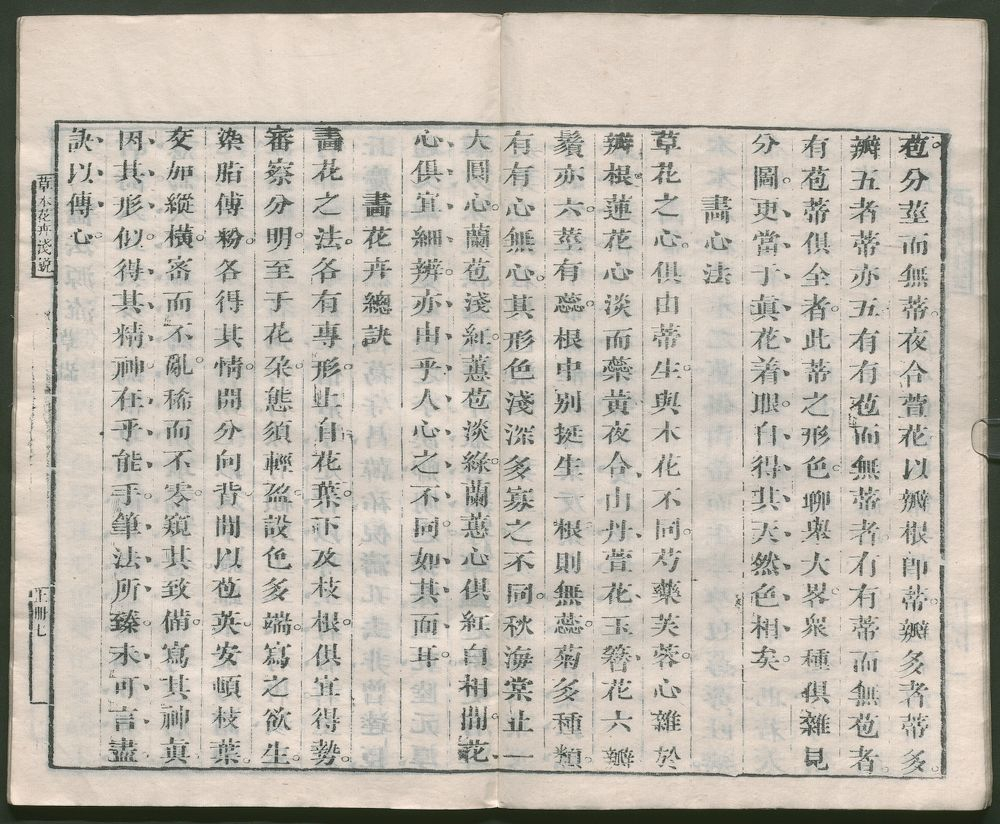 苞分莖而無蒂夜合萱花以瓣根卽蒂瓣多者蒂多
瓣五者蒂亦五有有苞而無蒂者有有蒂而無苞者
有苞蒂俱全者此蒂之形色聊舉大畧衆種俱雜見
分圖更當于眞花着眼自得其天然色相矣
畫心法
草花之心俱由蒂生與木花不同芍藥芙蓉心雜於
瓣根蓮花心淡而藥黃夜合山丹萱花玉簪花六瓣
鬚亦六莖有蕊根中別挺生友根則無蕊菊多種類
有有心無心其形色淺深多寡之不同秋海棠止一
大圓心蘭苞淺紅蕙苞淡綠蘭蕙心俱紅白相間花
心俱宜細辨亦由乎人心之不同如其面耳
畫花卉總訣
畫花之法各有專形止自花葉下及枝根俱宜得勢
審察分明至于花朶態須輕盈設色多端寫之欲生
染脂傅粉各得其情開分向背間以苞英安頓枝葉
交加縱橫密而不亂稀而不零窺其致備寫其神眞
因其形似得其精神在乎能手筆法所臻未可言盡
訣以傳心
草本花卉淺說
正冊七